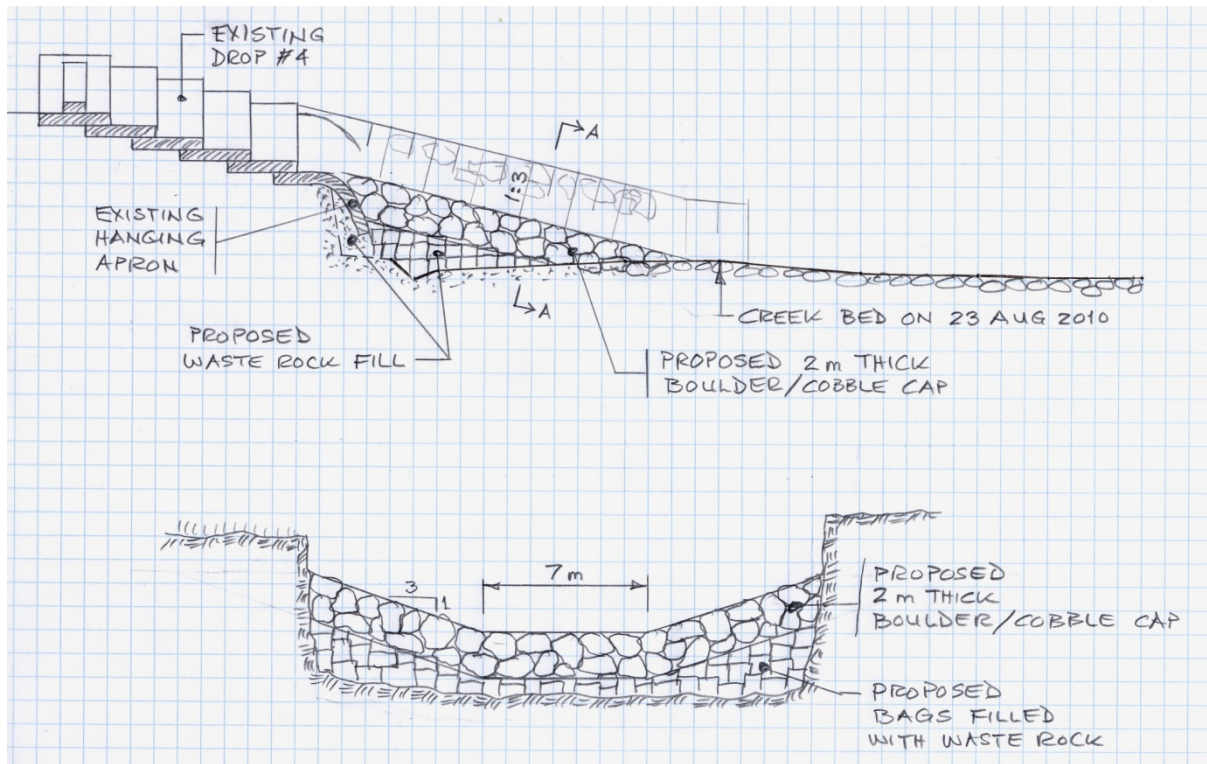 EXISTING
DROP #4
A
1:3
EXISTING
HANGING
APRON
A
CREEK BED ON 23 AUG 2010
PROPOSED
WASTE ROCK FILL
PROPOSED 2m THICK
BOULDER/COBBLE CAP
7m
3
1
PROPOSED
2m THICK
BOULDER/COBBLE CAP
PROPOSED
BAGS FILLED
WITH WASTE ROCK